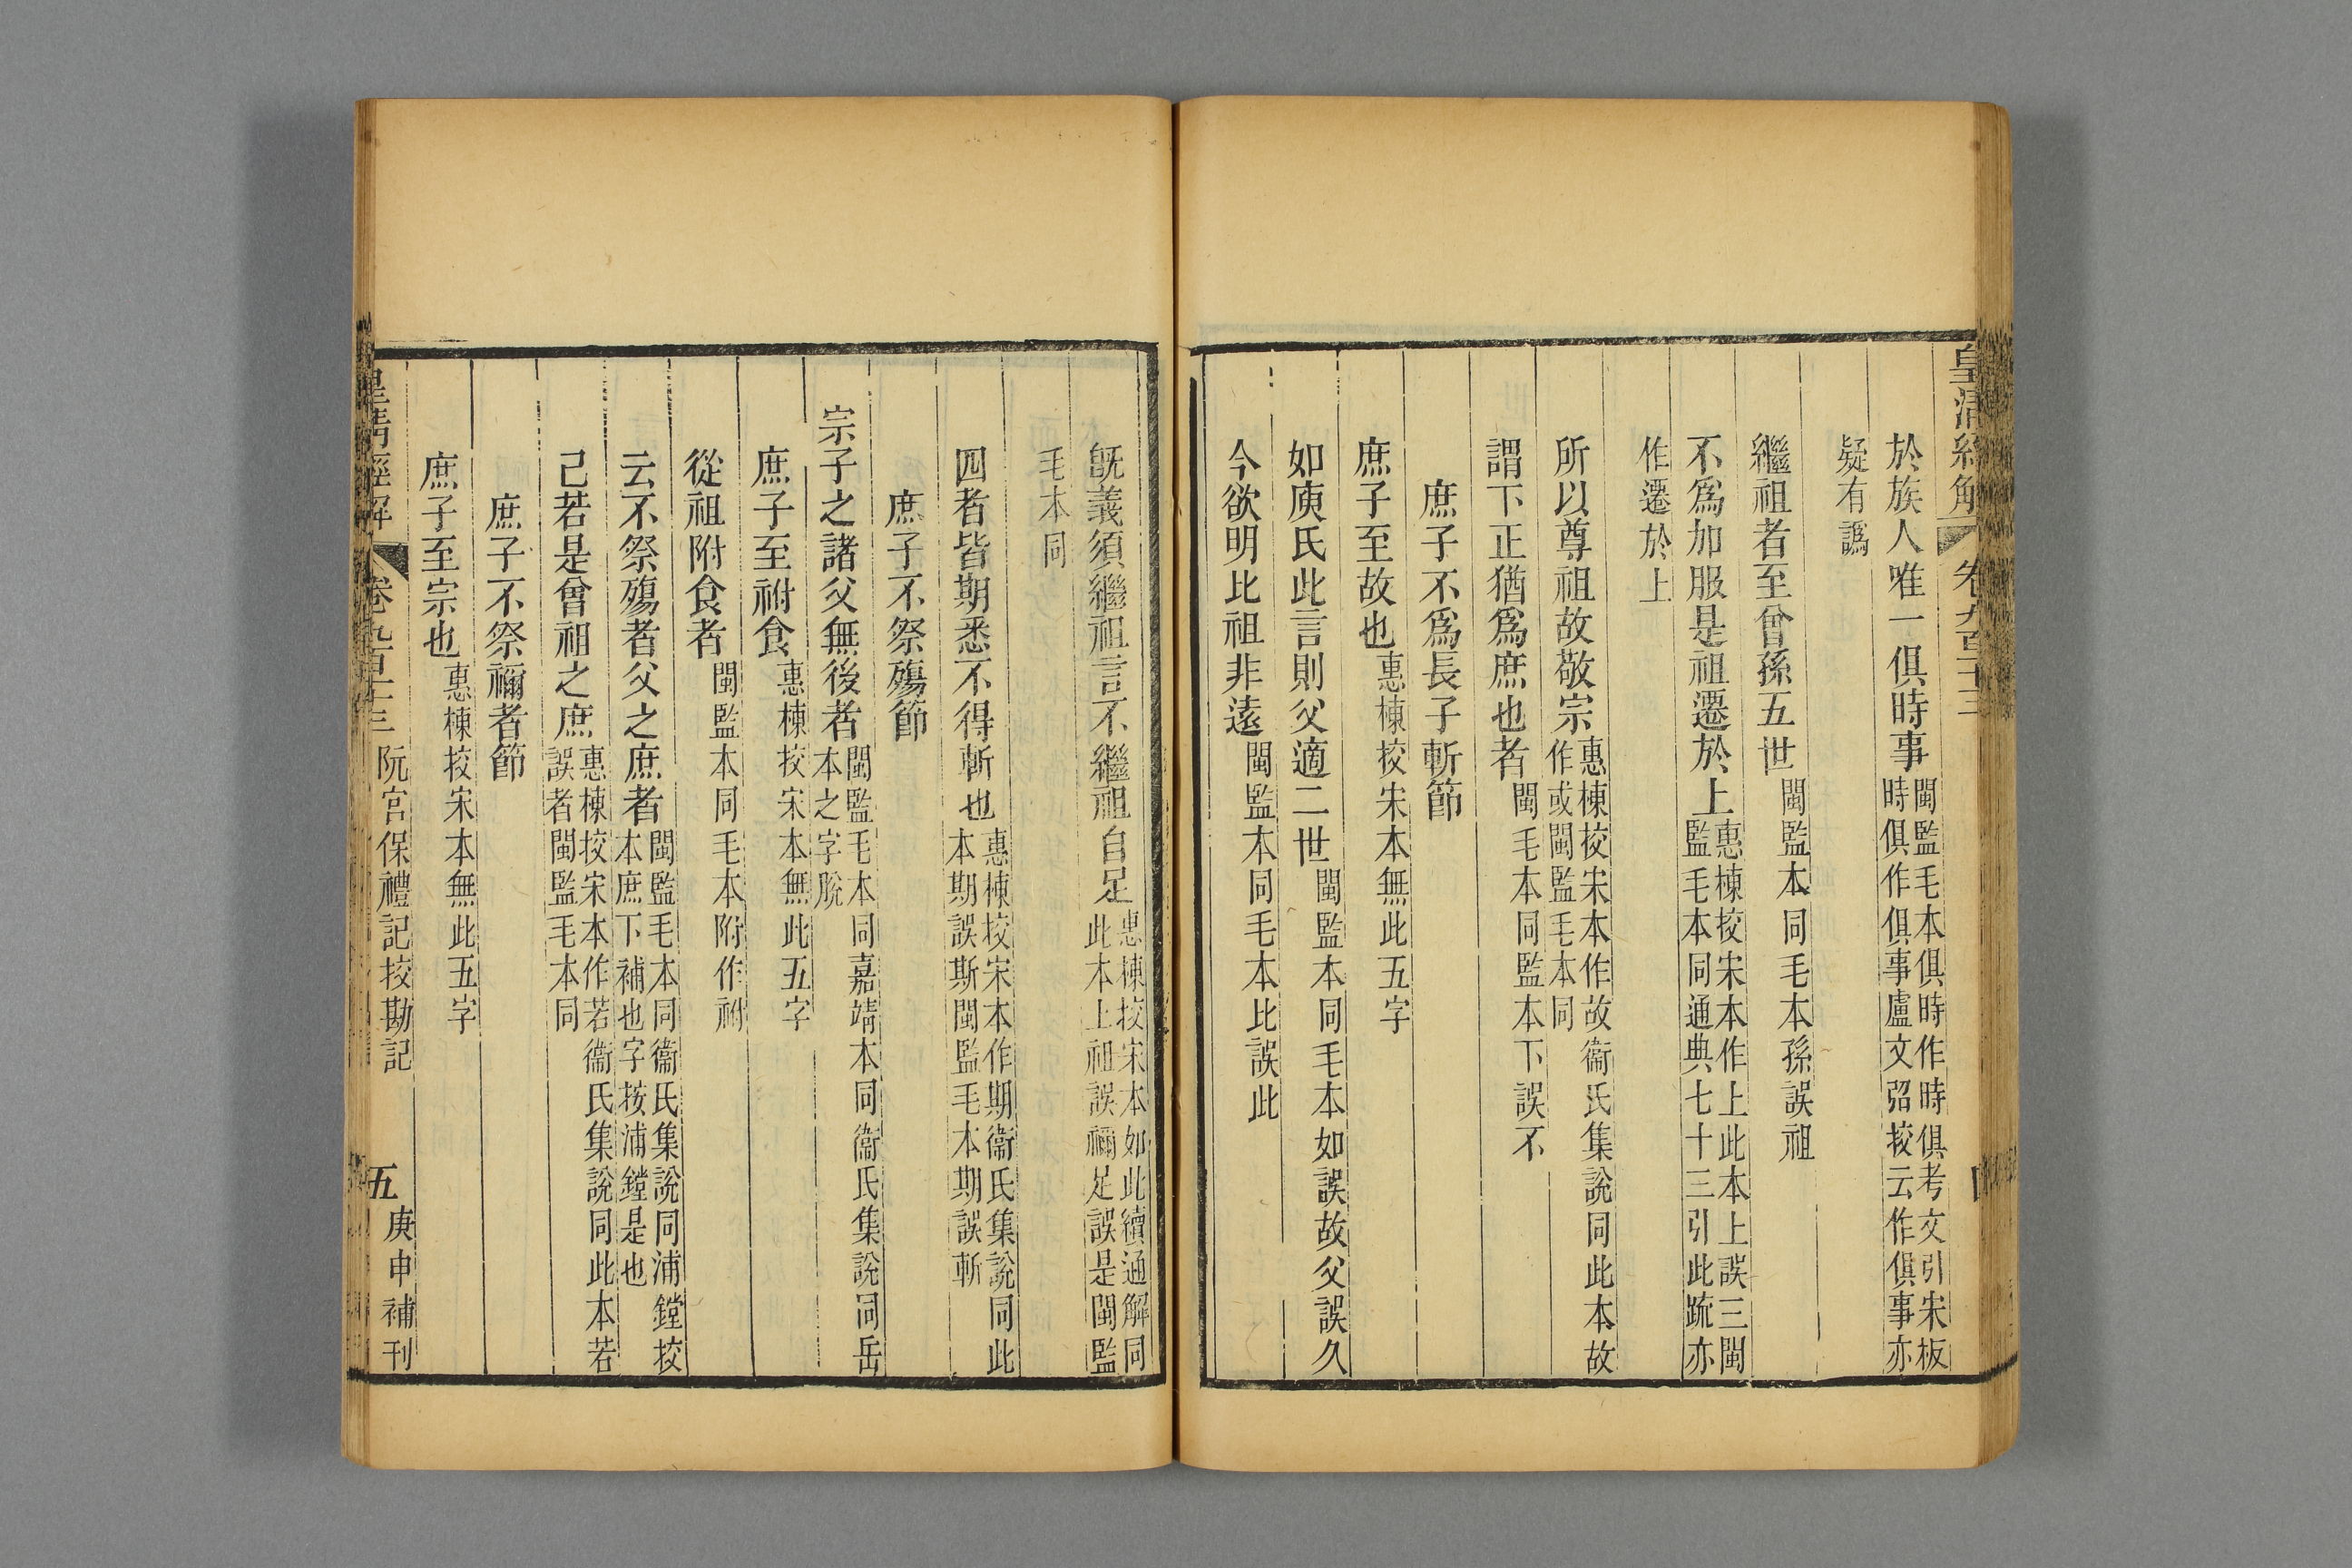 皇清經解 卷九百十三
於族人唯一俱時事 閩監毛本俱時作時俱考文引宋板
時俱作俱事盧文弨挍云作俱事亦
疑有譌
繼祖者至曾孫五世 閩監本同毛本孫誤祖
不爲加服是祖遷於上 惠棟挍宋本作上此本上誤三閩
監毛本同通典七十三引此䟽亦
作遷於上
所以尊祖故敬宗 惠棟挍宋本作故衞氏集說同此本故
作或閩監毛本同
謂下正猶爲庶也者 閩毛本同監本下誤不
庶子不爲長子斬節
庶子至故也 惠棟挍宋本無此五字
如庾氏此言則父適二世 閩監本同毛本如誤故父誤久
今欲明比祖非遠 閩監本同毛本比誤此
旣義須繼祖言不繼祖自足 惠棟挍宋本如此續通解同
此本上祖誤禰足誤是閩監
毛本同
四者皆期悉不得斬也 惠棟挍宋本作期衞氏集說同此
本期誤斯閩監毛本期誤斬
庶子不祭殤節
宗子之諸父無後者 閩監毛本同嘉靖本同衞氏集說同岳
本之字脫
庶子至祔食 惠棟挍宋本無此五字
從祖附食者 閩監本同毛本附作祔
云不祭殤者父之庶者 閩監毛本同衞氏集說同浦鏜挍
本庶下補也字按浦鏜是也
己若是曾祖之庶 惠棟挍宋本作若衞氏集說同此本若
誤者閩監毛本同
庶子不祭禰者節
庶子至宗也 惠棟挍宋本無此五字
皇清經解 卷九百十三 阮宮保禮記挍勘記 五 庚申補刊